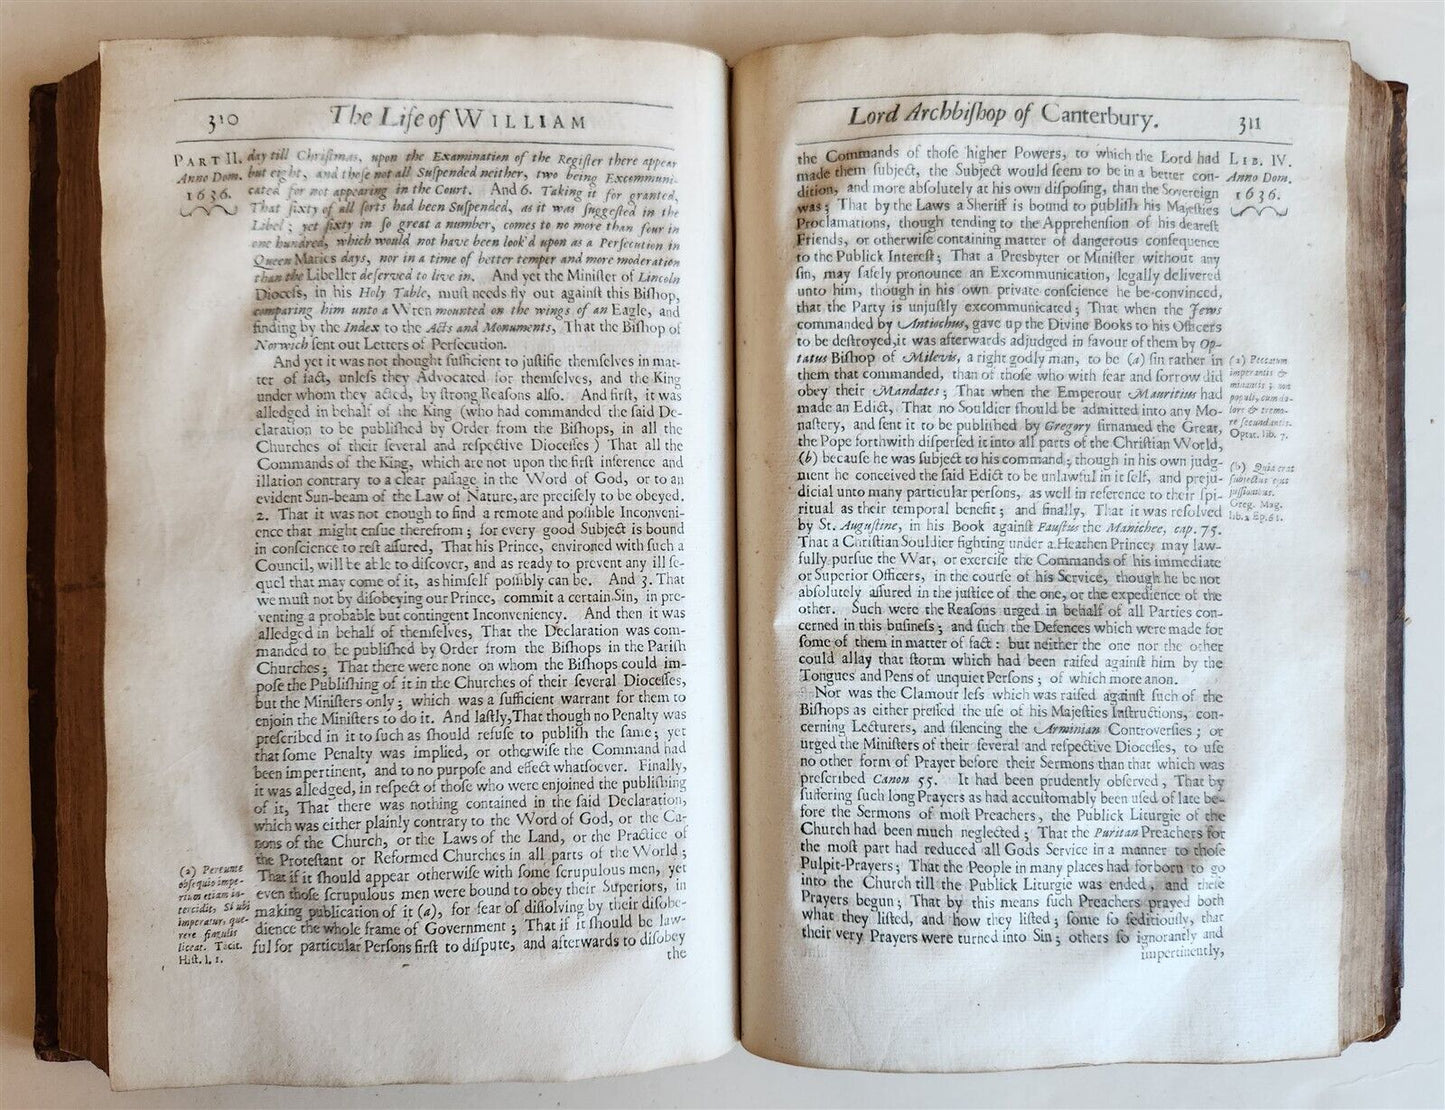 310 The Life of WILLIAM
PART II.
Anno Dom.
1636.
day till Chriſtmas, upon the Examination of the Regiſter there appear
but eight, and thoſe not all Suſpended neither, two being Excommuni-
cated for not appearing in the Court. And 6. Taking it for granted,
That ſixty of all ſorts had been Suſpended, as it was ſuggeſted in the
Libel; yet ſixty in ſo great a number, comes to no more than four in
one hundred, which would not have been look'd upon as a Perſecution in
Queen Maries days, nor in a time of better temper and more moderation
than the Libeller deſerved to live in. And yet the Miniſter of Lincoln
Dioceſs, in his Holy Table, muſt needs fly out againſt this Biſhop,
comparing him unto a Wren mounted on the wings of an Eagle, and
finding by the Index to the Acts and Monuments, That the Biſhop of
Norwich ſent out Letters of Perſecution.
And yet it was not thought ſufficient to juſtifie themſelves in mat-
ter of fact, unleſs they Advocated for themſelves, and the King
under whom they acted, by ſtrong Reaſons alſo. And firſt, it was
alledged in behalf of the King (who had commanded the ſaid De-
claration to be publiſhed by Order from the Biſhops, in all the
Churches of their ſeveral and reſpective Dioceſſes) That all the
Commands of the King, which are not upon the firſt inference and
illation contrary to a clear paſſage in the Word of God, or to an
evident Sun-beam of the Law of Nature, are preciſely to be obeyed.
2. That it was not enough to find a remote and poſſible Inconveni-
ence that might enſue therefrom; for every good Subject is bound
in conſcience to reſt aſſured, That his Prince, environed with ſuch a
Council, will be able to diſcover, and as ready to prevent any ill ſe-
quel that may come of it, as himſelf poſſibly can be. And 3. That
we muſt not by diſobeying our Prince, commit a certain Sin, in pre-
venting a probable but contingent Inconveniency. And then it was
alledged in behalf of themſelves, That the Declaration was com-
manded to be publiſhed by Order from the Biſhops in the Pariſh
Churches; That there were none on whom the Biſhops could im-
poſe the Publiſhing of it in the Churches of their ſeveral Dioceſſes,
but the Miniſters only; which was a ſufficient warrant for them to
enjoin the Miniſters to do it. And laſtly, That though no Penalty was
preſcribed in it to ſuch as ſhould refuſe to publiſh the ſame; yet
that ſome Penalty was implied, or otherwiſe the Command had
been impertinent, and to no purpoſe and effect whatſoever. Finally,
it was alledged, in reſpect of thoſe who were enjoined the publiſhing
of it, That there was nothing contained in the ſaid Declaration,
which was either plainly contrary to the Word of God, or the Ca-
nons of the Church, or the Laws of the Land, or the Practice of
the Proteſtant or Reformed Churches in all parts of the World;
That if it ſhould appear otherwiſe with ſome ſcrupulous men, yet
even thoſe ſcrupulous men were bound to obey their Superiors, in
making publication of it (a), for fear of diſſolving by their diſobe-
dience the whole frame of Government; That if it ſhould be law-
ful for particular Perſons firſt to diſpute, and afterwards to diſobey
the
(a) Pereunte
obſequio impe-
rium etiam in-
tercidit, Si ubi
imperatur, quæ-
rere ſingulis
liceat. Tacit.
Hiſt. l. 1.
Lord Archbiſhop of Canterbury. 311
LIB. IV.
Anno Dom.
1636.
the Commands of thoſe higher Powers, to which the Lord had
made them ſubject, the Subject would ſeem to be in a better con-
dition, and more abſolutely at his own diſpoſing, than the Sovereign
was; That by the Laws a Sheriff is bound to publiſh his Majeſties
Proclamations, though tending to the Apprehenſion of his deareſt
Friends, or otherwiſe containing matter of dangerous conſequence
to the Publick Intereſt; That a Presbyter or Miniſter without any
ſin, may ſafely pronounce an Excommunication, legally delivered
unto him, though in his own private conſcience he be convinced,
that the Party is unjuſtly excommunicated; That when the Jews
commanded by Antiochus, gave up the Divine Books to his Officers
to be deſtroyed, it was afterwards adjudged in favour of them by Op-
tatus Biſhop of Milevis, a right godly man, to be (a) ſin rather in
them that commanded, than of thoſe who with fear and ſorrow did
obey their Mandates; That when the Emperour Mauritius had
made an Edict, That no Souldier ſhould be admitted into any Mo-
naſtery, and ſent it to be publiſhed by Gregory ſirnamed the Great,
the Pope forthwith diſperſed it into all parts of the Chriſtian World,
(b) becauſe he was ſubject to his command; though in his own judg-
ment he conceived the ſaid Edict to be unlawful in it ſelf, and preju-
dicial unto many particular perſons, as well in reference to their ſpi-
ritual as their temporal benefit; and finally, That it was reſolved
by St. Auguſtine, in his Book againſt Fauſtus the Manichee, cap. 75.
That a Chriſtian Souldier fighting under a Heathen Prince, may law-
fully purſue the War, or exerciſe the Commands of his immediate
or Superior Officers, in the courſe of his Service, though he be not
abſolutely aſſured in the juſtice of the one, or the expedience of the
other. Such were the Reaſons urged in behalf of all Parties con-
cerned in this buſineſs; and ſuch the Defences which were made for
ſome of them in matter of fact: but neither the one nor the other
could allay that ſtorm which had been raiſed againſt him by the
Tongues and Pens of unquiet Perſons; of which more anon.
Nor was the Clamour leſs which was raiſed againſt ſuch of the
Biſhops as either preſſed the uſe of his Majeſties Inſtructions, con-
cerning Lecturers, and ſilencing the Arminian Controverſies; or
urged the Miniſters of their ſeveral and reſpective Dioceſſes, to uſe
no other form of Prayer before their Sermons than that which was
preſcribed Canon 55. It had been prudently obſerved, That by
ſuffering ſuch long Prayers as had accuſtomably been uſed of late be-
fore the Sermons of moſt Preachers, the Publick Liturgie of the
Church had been much neglected; That the Puritan Preachers for
the moſt part had reduced all Gods Service in a manner to thoſe
Pulpit-Prayers; That the People in many places had forborn to go
into the Church till the Publick Liturgie was ended, and theſe
Prayers begun; That by this means ſuch Preachers prayed both
what they liſted, and how they liſted; ſome ſo ſeditiouſly, that
their very Prayers were turned into Sin; others ſo ignorantly and
impertinently,
(a) Peccatum
imperantis &
minantis; non
populi, cum do-
lore & tremo-
re ſecundantis.
Optat. lib. 7.
(b) Quia erat
ſubjectus ejus
juſſionibus.
Greg. Mag.
lib. 2 Ep. 61.